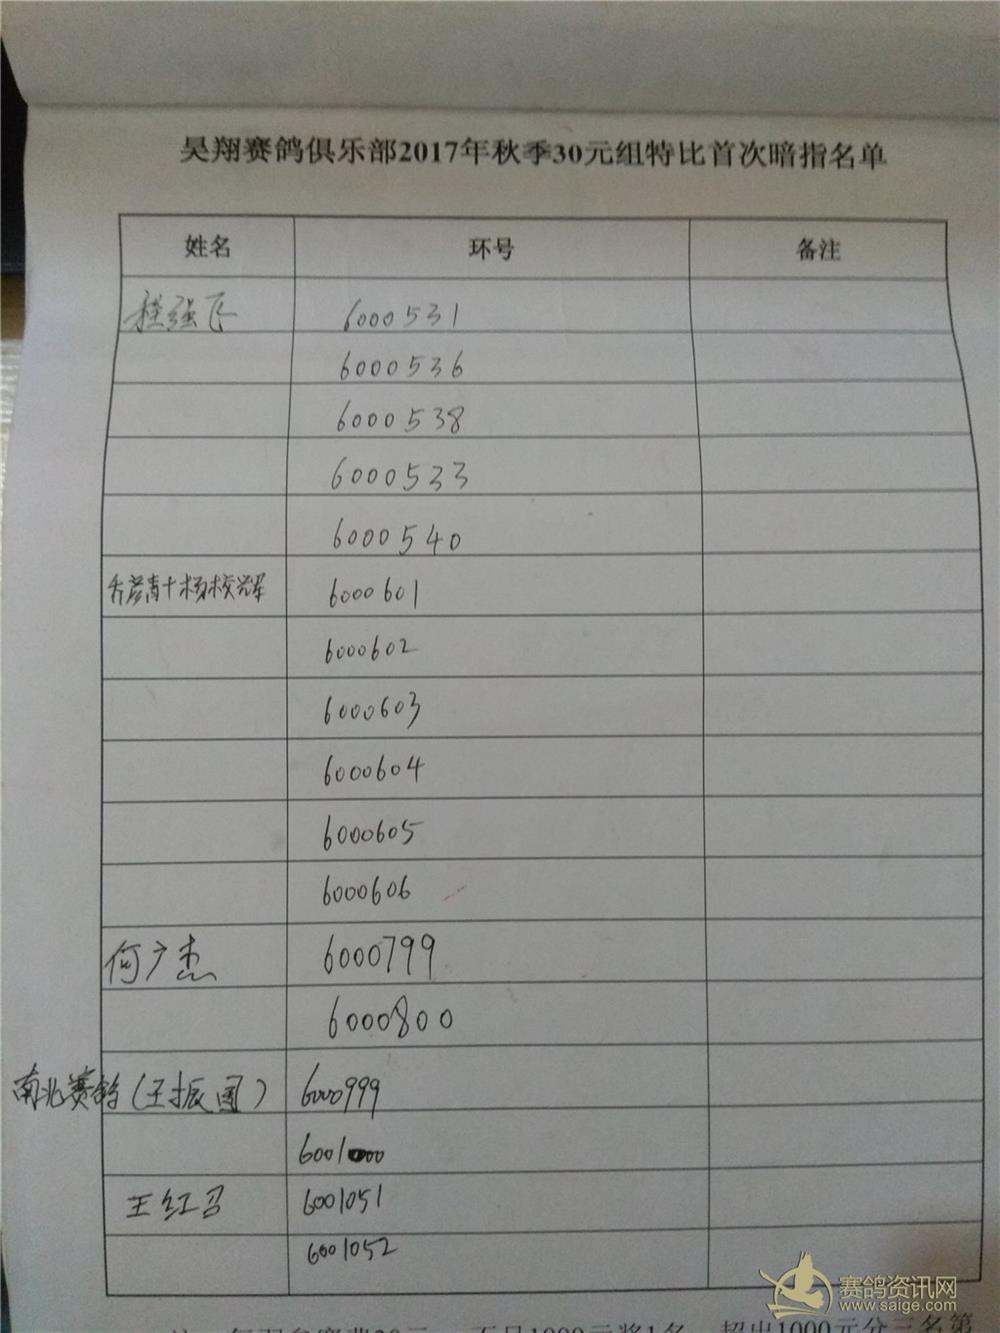 昊翔赛鸽俱乐部2017年秋季30元组特比首次暗指名单
姓名 环号 备注
程强飞 6000531
6000536
6000538
6000533
6000540
乔彦青+杨校辉 6000601
6000602
6000603
6000604
6000605
6000606
何广杰 6000799
6000800
南北赛鸽(王振国) 6000999
6001000
王红召 6001051
6001052
赛鸽资讯网
www.saige.com